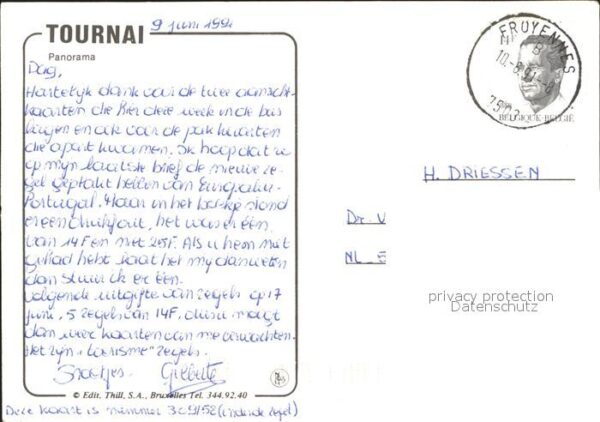 TOURNAI
9 juni 1991
Panorama
Dag,
Hartelijk dank voor de twee aanzicht-
kaarten die hier deze week in de bus
lagen en ook voor de pak kaarten
die apart kwamen. Ik hoop dat u
op mijn laatste brief de nieuwe ze-
gel geplakt hebben van Europalia-
Portugal. Maar in het boekje stond
er een drukfout, het was er één
van 14F en niet 25F. Als u hem niet
gehad hebt laat het mij dan weten
dan stuur ik er één.
Volgende uitgifte van zegels op 17
juni, 5 zegels van 14F, dus u moogt
dan weer kaarten van me verwachten.
Het zijn "toerisme" zegels.
Groetjes Gilberte
© Edit. Thill, S.A., Bruxelles Tel. 344.92.40
Deze kaart is nummer
FROYENNES
10.-6.
BELGIQUE-BELGIË
H. DRIESSEN
Dr. V
NL
privacy protection
Datenschutz